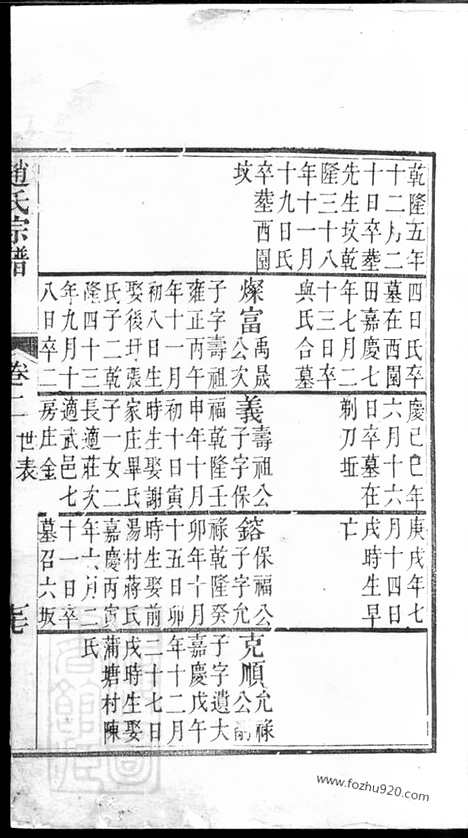 乾隆五年
十二月二
十日卒葬
先生坟乾
隆三十八
年十一月
十九日氏
卒葬西園
坟
四日氏卒
墓在西園
田嘉慶七
年七月二
十三日卒
與氏合墓
燦富禹晟
公次
子字壽祖
雍正丙午
年十一月
初八日生
娶後圩張
氏子二乾
隆四十三
年九月十
八日卒二
慶己巳年
六月十六
日卒墓在
剃刀坵
義壽祖公
子字保
福乾隆壬
申年十月
初十日寅
時生娶謝
家庄畢氏
子一女二
長適莊次
適武邑七
房庄金
庚戌年七
月十四日
戌時生早
亡
鎔保福公
子字允
祿乾隆癸
卯年十月
十五日卯
時生娶前
湯村蔣氏
嘉慶丙寅
年六月二
十一日卒
墓召六坂
克順允祿
公嗣
子字遺大
嘉慶戊午
年十二月
二十七日
戌時生娶
蒲塘村陳
氏
趙氏宗譜
卷二
世表
www.fozhu920.com